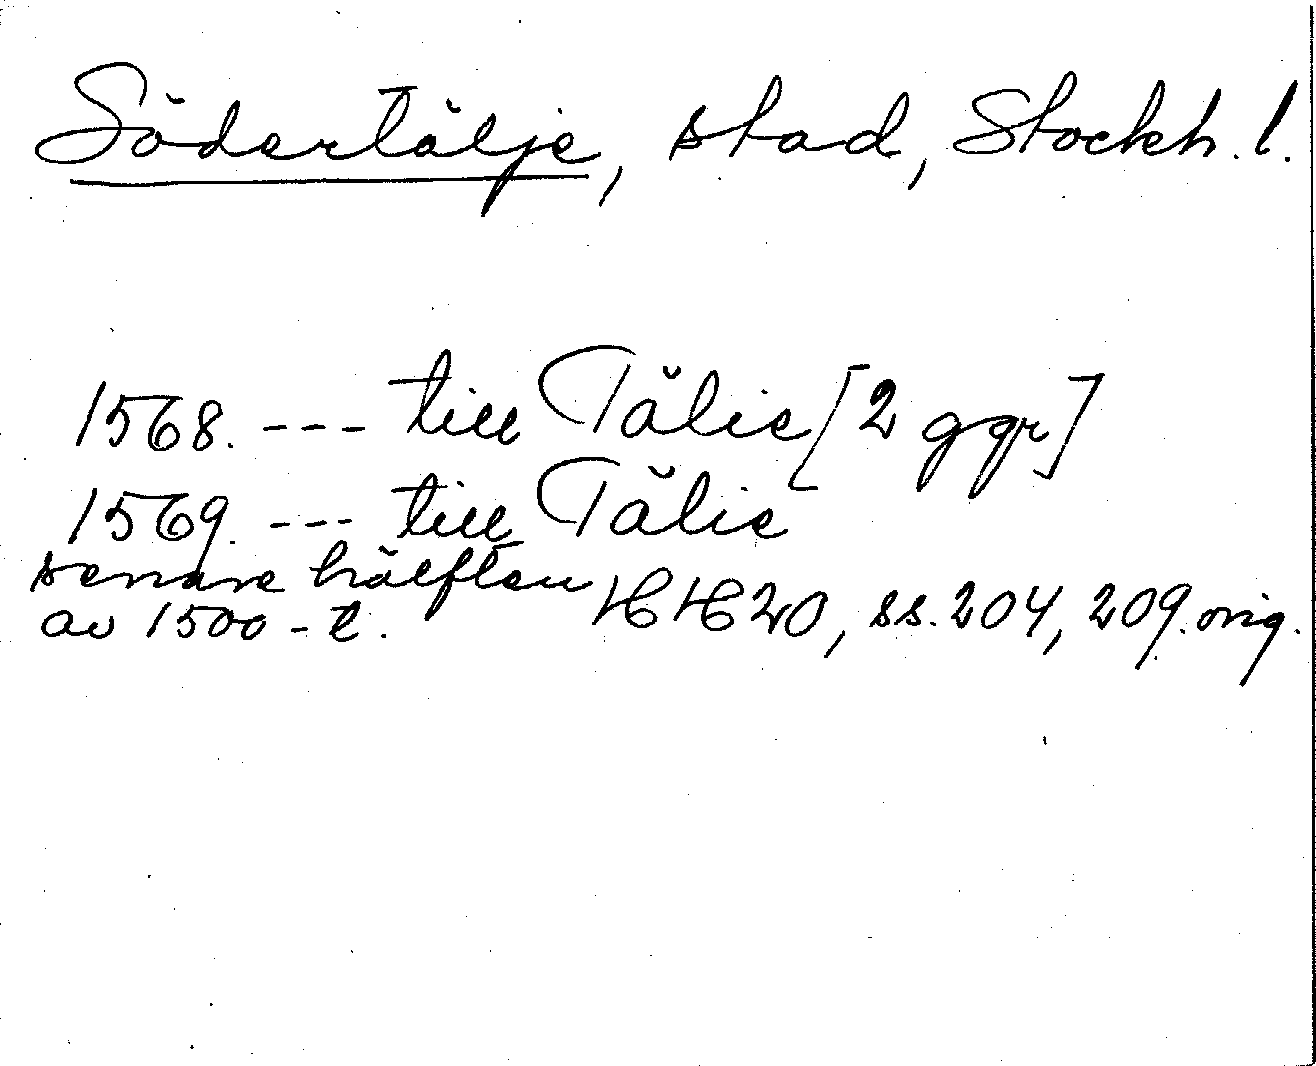 Södertälje, stad, Stockh. l.
1568. --- till Tälie [2 ggr]
1569. --- till Tälie
senare hälften
av 1500-t. HH20, ss. 204, 209. orig.